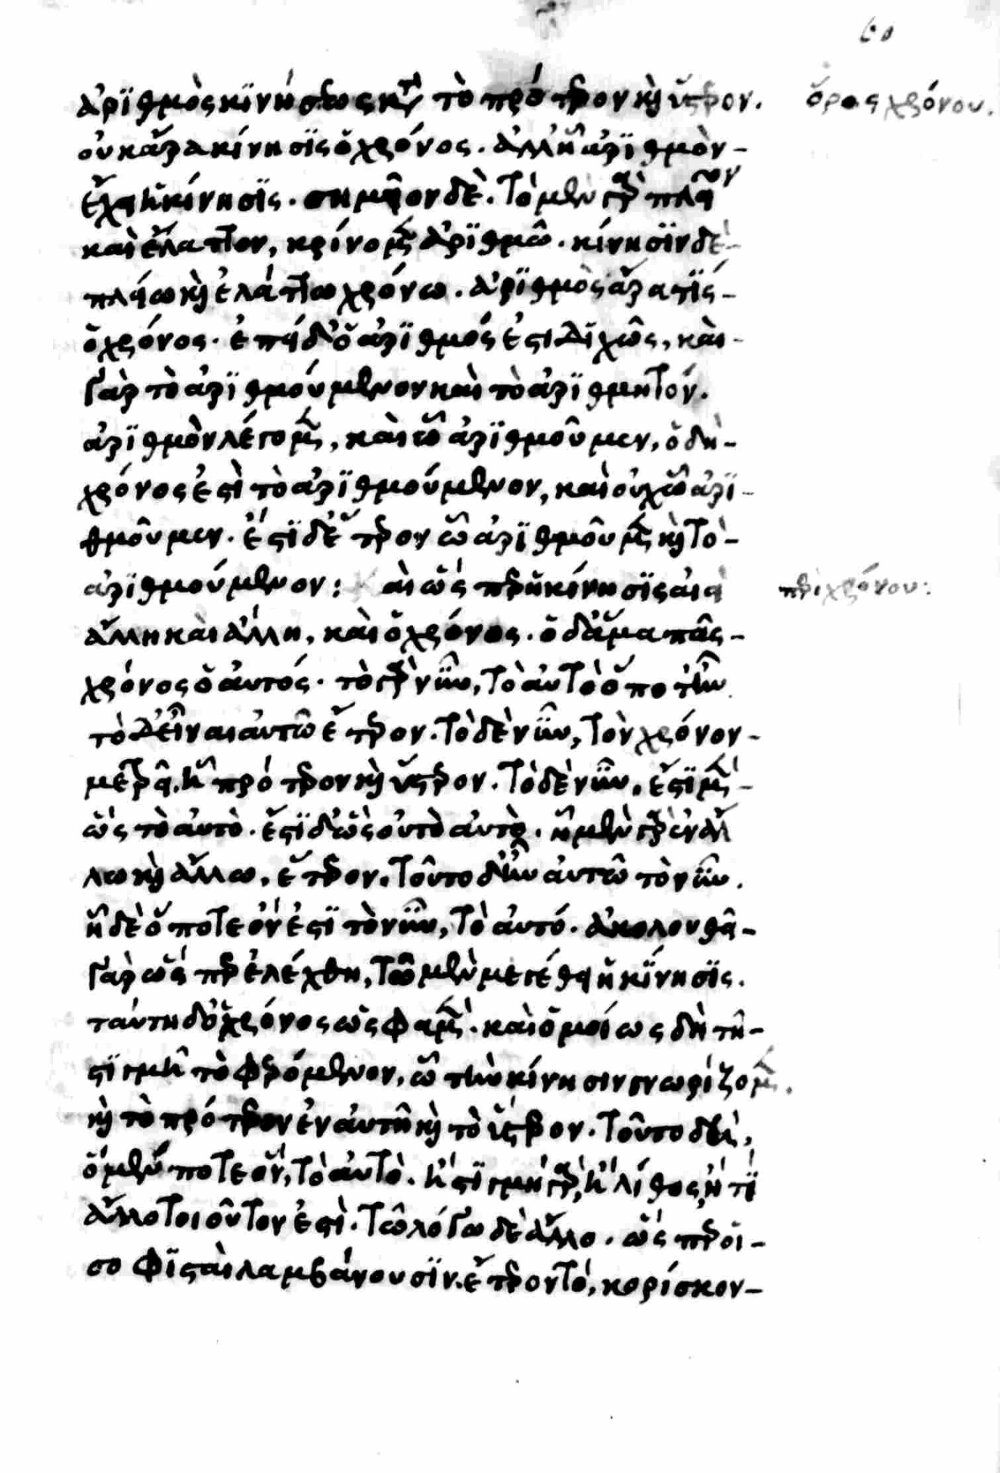 ἀριθμὸς κινήσεως κατὰ τὸ πρότερον καὶ ὕστερον. ὅρος χρόνου.
οὐκ ἄρα κίνησις ὁ χρόνος. ἀλλ' ᾗ ἀριθμὸν
ἔχει ἡ κίνησις. σημεῖον δὲ. τὸ μὲν γὰρ πλεῖον
καὶ ἔλαττον, κρίνομεν ἀριθμῶ. κίνησιν δὲ
πλείω καὶ ἐλάττω χρόνω. ἀριθμὸς ἄρα τίς
ὁ χρόνος. ἐπεὶ δ' ὁ ἀριθμός ἐστι διχῶς, καὶ
γὰρ τὸ ἀριθμούμενον καὶ τὸ ἀριθμητόν.
ἀριθμὸν λέγομεν, καὶ ὧ ἀριθμοῦμεν, ὁ δὴ
χρόνος ἐστὶ τὸ ἀριθμούμενον, καὶ οὐχ ὧ ἀρι
θμοῦμεν. ἔστι δ' ἕτερον ὧ ἀριθμοῦμεν καὶ τὸ
ἀριθμούμενον: καὶ ὥσπερ ἡ κίνησις αἰεὶ περὶ χρόνου:
ἄλλη καὶ ἄλλη, καὶ ὁ χρόνος. ὁ δ' ἅμα πᾶς
χρόνος ὁ αὐτός. τὸ γὰρ νῦν, τὸ αὐτὸ ὅ ποτ' ἦν
τὸ δ' εἶναι αὐτῶ ἕτερον. τὸ δὲ νῦν, τὸν χρόνον
μετρεῖ, ᾗ πρότερον καὶ ὕστερον. τὸ δὲ νῦν, ἔστι μὲν
ὡς τὸ αὐτὸ. ἔστι δ' ὡς οὐ τὸ αὐτὸ. ᾗ μὲν γὰρ ἐν ἄλ
λω καὶ ἄλλω, ἕτερον. τοῦτο δ' ἦν αὐτῶ τὸ νῦν.
ᾗ δὲ ὅ ποτε ὄν ἐστι τὸ νῦν, τὸ αὐτό. ἀκολουθεῖ
γὰρ ὡς περ ἐλέχθη, τῶ μὲν μεγέθει ἡ κίνησις.
ταύτη δ' ὁ χρόνος ὥς φαμεν. καὶ ὁμοίως δὴ τῆ
στιγμῆ τὸ φερόμενον, ὧ τὴν κίνησιν γνωρίζομεν.
καὶ τὸ πρότερον ἐν αὐτῆ καὶ τὸ ὕστερον. τοῦτο δὲ,
ὃ μέν ποτε ὄν, τὸ αὐτὸ. ἢ στιγμὴ γὰρ, ἢ λίθος, ἤ τι
ἄλλο τοιοῦτον ἐστὶ. τῶ λόγω δὲ ἄλλο. ὥσπερ οἱ
σοφισταὶ λαμβάνουσιν. ἕτερον τὸ, κορίσκον